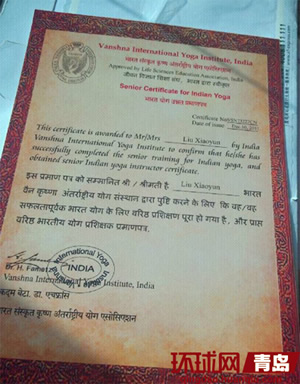 Vanshna International Yoga Institute, India
भारत संस्कृत कृष्ण अंतर्राष्ट्रीय योग एसोसिएशन
Approved by Life Sciences Education Association, India
जीवन विज्ञान शिक्षा संघ, भारत द्वारा स्वीकृत
Senior Certificate for Indian Yoga
भारत योग उच्च प्रमाणपत्र
Certificate Number
Date of issue:
This certificate is awarded to Mr/Mrs Liu Xiaoyan by India
Vanshna International Yoga Institute to confirm that he/she has
successfully completed the senior training for Indian yoga, and
obtained senior Indian yoga instructor certificate.
इस प्रमाण पत्र को सम्मानित श्री / श्रीमती है Liu Xiaoyan भारत
वैन कृष्णा अंतर्राष्ट्रीय योग संस्थान द्वारा पुष्टि करने के लिए कि वह/वह
सफलतापूर्वक भारत योग के लिए वरिष्ठ प्रशिक्षण पूरा हो गया है. और प्राप्त
वरिष्ठ भारतीय योग प्रशिक्षक प्रमाणपत्र.
International Yoga
INDIA
Dr. H.
Vanshna International Yoga Institute, India
कदम बेटा. डा. एचफ्रांस
भारत संस्कृत कृष्ण अंतर्राष्ट्रीय योग एसोसिएशन
环球网 青岛